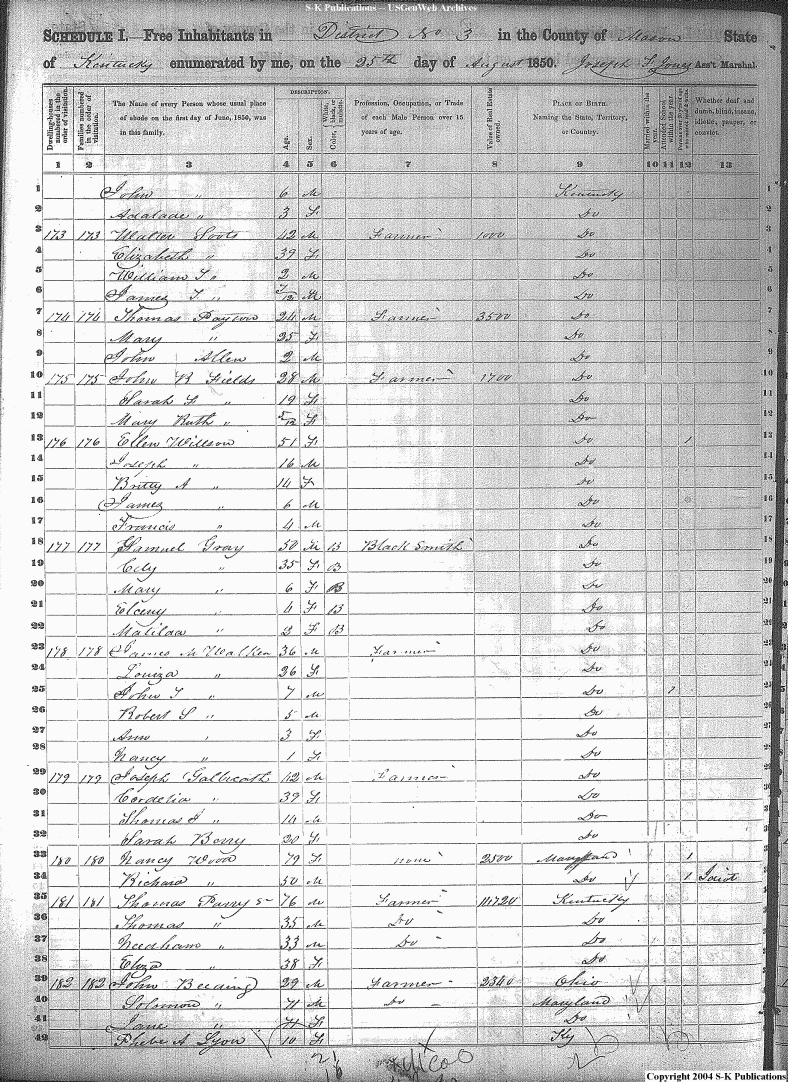 S-K Publications – USGenWeb Archives
SCHEDULE I.—Free Inhabitants in District No 3 in the County of Mason State
of Kentucky enumerated by me, on the 25th day of August 1850. Joseph F. Jones Ass't Marshal.
Dwelling-houses numbered in the order of visitation.
Families numbered in the order of visitation.
The Name of every Person whose usual place of abode on the first day of June, 1850, was in this family.
DESCRIPTION.
Age.
Sex.
Color, White, black, or mulatto.
Profession, Occupation, or Trade of each Male Person over 15 years of age.
Value of Real Estate owned.
PLACE OF BIRTH. Naming the State, Territory, or Country.
Married within the year.
Attended School within the year.
Whether deaf and dumb, blind, insane, idiotic, pauper, or convict.
1 2 3 4 5 6 7 8 9 10 11 12 13
1 John " 6 M Kentucky 1
2 Adalade " 3 F Do 2
3 173 173 Walter Soots 42 M Farmer 1000 Do 3
4 Elizabeth " 39 F Do 4
5 William " 2 M Do 5
6 James T " 7/12 M Do 6
7 174 174 Thomas Payton 24 M Farmer 3500 Do 7
8 Mary " 25 F Do 8
9 John Allen 2 M Do 9
10 175 175 John B Fields 28 M Farmer 1700 Do 10
11 Sarah F " 19 F Do 11
12 Mary Ruth " 5/12 F Do 12
13 176 176 Ellen Willson 51 F Do 1 13
14 Joseph " 16 M Do 14
15 Britty A " 14 F Do 15
16 James " 6 M Do 16
17 Francis " 4 M Do 17
18 177 177 Samuel Gray 50 M B Black Smith Do 18
19 Cely " 35 F B Do 19
20 Mary " 6 F B Do 20
21 Elceny " 4 F B Do 21
22 Matilda " 2 F B Do 22
23 178 178 James M Walker 36 M Farmer Do 23
24 Louiza " 26 F Do 24
25 John T " 7 M Do 1 25
26 Robert S " 5 M Do 26
27 Ann " 3 F Do 27
28 Nancy " 1 F Do 28
29 179 179 Joseph Galbreath 42 M Farmer Do 29
30 Cordelia " 39 F Do 30
31 Thomas " 14 M Do 31
32 Sarah Berry 20 F Do 32
33 180 180 Nancy Wood 79 F none 2500 Maryland 1 33
34 Richard " 50 M Do 1 Idiot 34
35 181 181 Thomas Perry Sr 76 M Farmer Kentucky 35
36 Thomas " 35 M Do Do 36
37 Needham " 33 M Do Do 37
38 Eliza " 38 F Do 38
39 182 182 John Beeding 29 M Farmer 2340 Ohio 39
40 Solomon " 71 M Do Maryland 40
41 Jane " 71 F Do 41
42 Phebe A Lyon 10 F Ky 42
Copyright 2004 S-K Publications